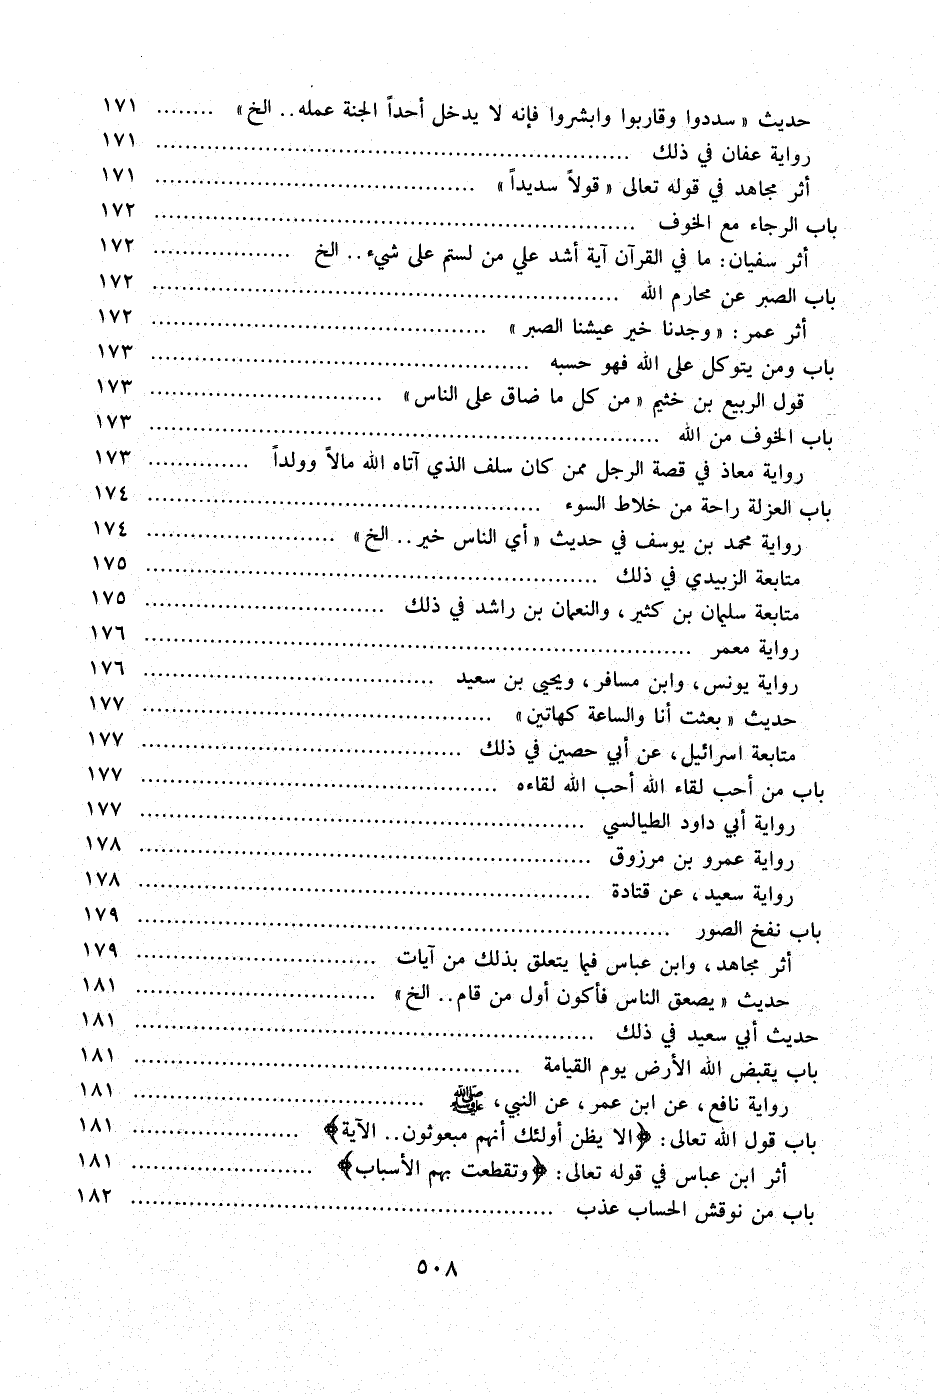 حديث « سددوا وقاربوا وابشروا فإنه لا يدخل أحداً الجنة عمله.. الخ » ........ ١٧١
رواية عفان في ذلك ........ ١٧١
أثر مجاهد في قوله تعالى « قولاً سديداً » ........ ١٧١
باب الرجاء مع الخوف ........ ١٧٢
أثر سفيان: ما في القرآن آية أشد علي من لستم على شيء.. الخ ........ ١٧٢
باب الصبر عن محارم الله ........ ١٧٢
أثر عمر: « وجدنا خير عيشنا الصبر » ........ ١٧٢
باب ومن يتوكل على الله فهو حسبه ........ ١٧٣
قول الربيع بن خثيم « من كل ما ضاق على الناس » ........ ١٧٣
باب الخوف من الله ........ ١٧٣
رواية معاذ في قصة الرجل ممن كان سلف الذي آتاه الله مالاً وولداً ........ ١٧٣
باب العزلة راحة من خلاط السوء ........ ١٧٤
رواية محمد بن يوسف في حديث « أي الناس خير.. الخ » ........ ١٧٤
متابعة الزبيدي في ذلك ........ ١٧٥
متابعة سليمان بن كثير، والنعمان بن راشد في ذلك ........ ١٧٥
رواية معمر ........ ١٧٦
رواية يونس، وابن مسافر، ويحيى بن سعيد ........ ١٧٦
حديث « بعثت أنا والساعة كهاتين » ........ ١٧٧
متابعة اسرائيل، عن أبي حصين في ذلك ........ ١٧٧
باب من أحب لقاء الله أحب الله لقاءه ........ ١٧٧
رواية أبي داود الطيالسي ........ ١٧٧
رواية عمرو بن مرزوق ........ ١٧٨
رواية سعيد، عن قتادة ........ ١٧٨
باب نفخ الصور ........ ١٧٩
أثر مجاهد، وابن عباس فيما يتعلق بذلك من آيات ........ ١٧٩
حديث « يصعق الناس فأكون أول من قام.. الخ » ........ ١٨١
حديث أبي سعيد في ذلك ........ ١٨١
باب يقبض الله الأرض يوم القيامة ........ ١٨١
رواية نافع، عن ابن عمر، عن النبي، ﷺ ........ ١٨١
باب قول الله تعالى: ﴿الا يظن أولئك أنهم مبعوثون.. الآية﴾ ........ ١٨١
أثر ابن عباس في قوله تعالى: ﴿وتقطعت بهم الأسباب﴾ ........ ١٨١
باب من نوقش الحساب عذب ........ ١٨٢
٥٠٨